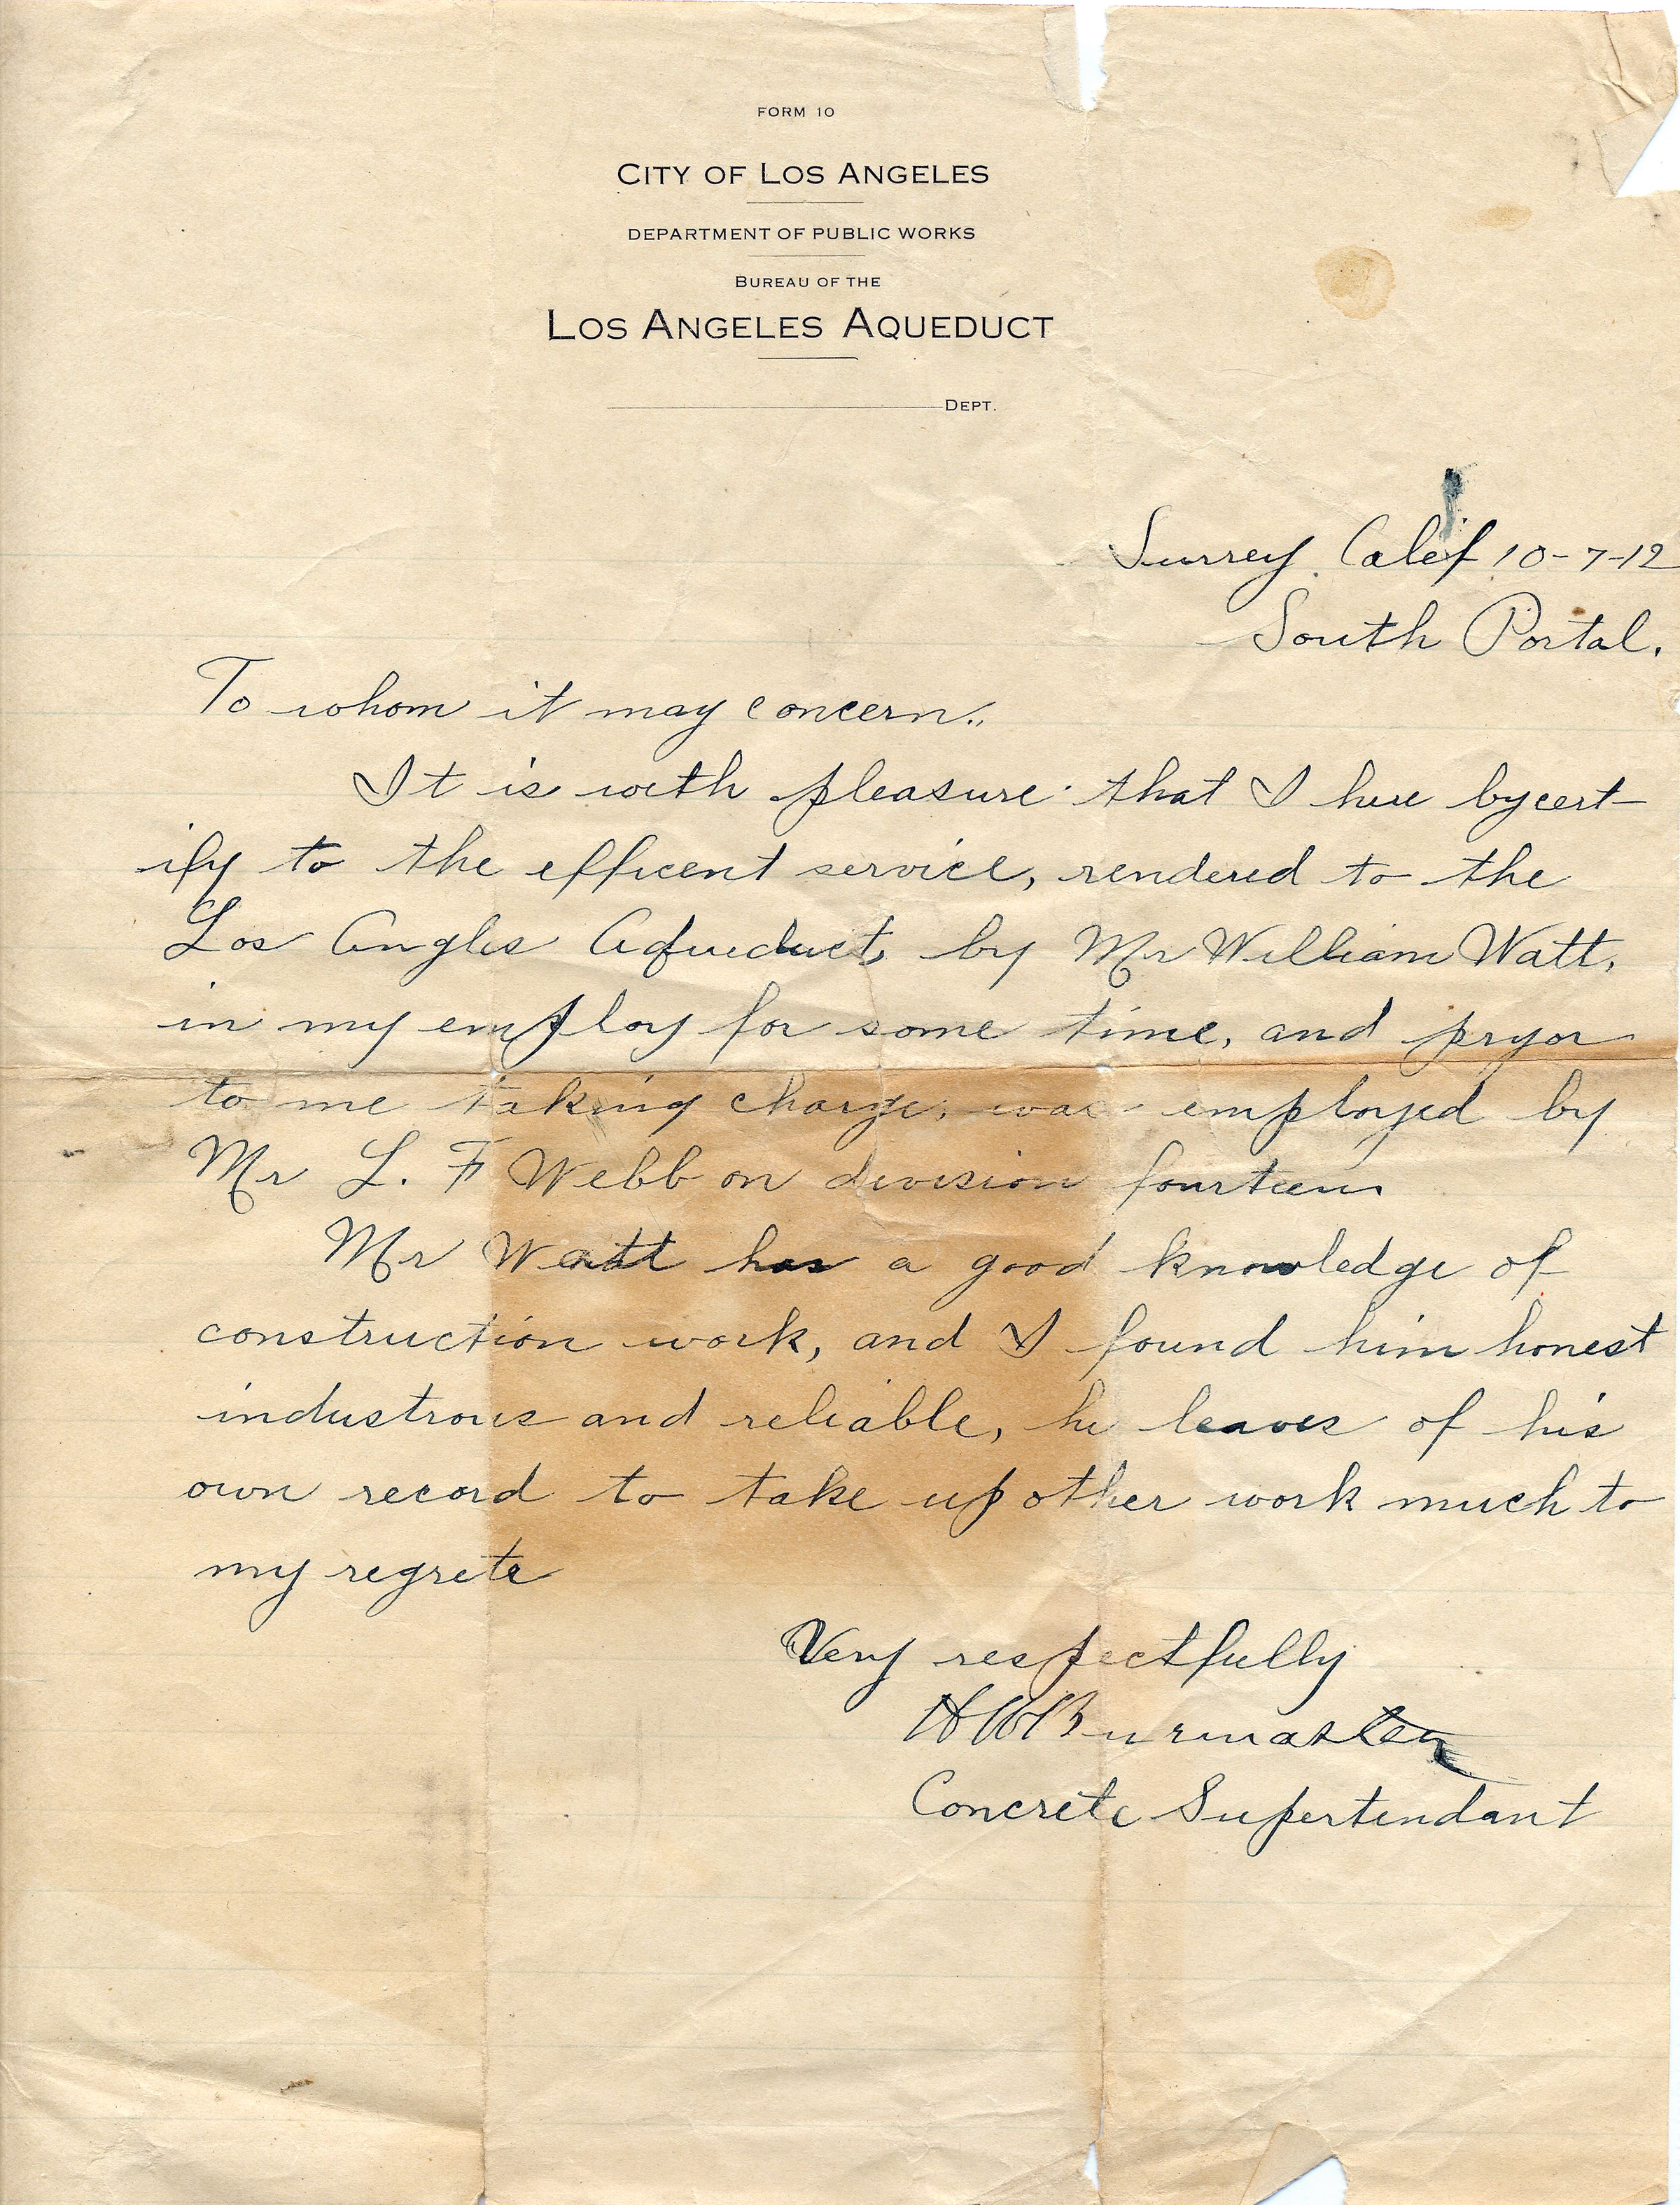 FORM 10
CITY OF LOS ANGELES
DEPARTMENT OF PUBLIC WORKS
BUREAU OF THE
LOS ANGELES AQUEDUCT
DEPT.
Surrey Calif 10-7-12
South Portal.
To whom it may concern.,
It is with pleasure that I here by cert-
ify to the efficent service, rendered to the
Los Angles Aqueduct, by Mr William Watt,
in my employ for some time, and pryor
to me taking charge, was employed by
Mr L. F Webb on division fourteen
Mr Watt has a good knowledge of
construction work, and I found him honest
industrous and reliable, he leaves of his
own record to take up other work much to
my regrete
Very respectfully
H W Burmaster
Concrete Supertendant